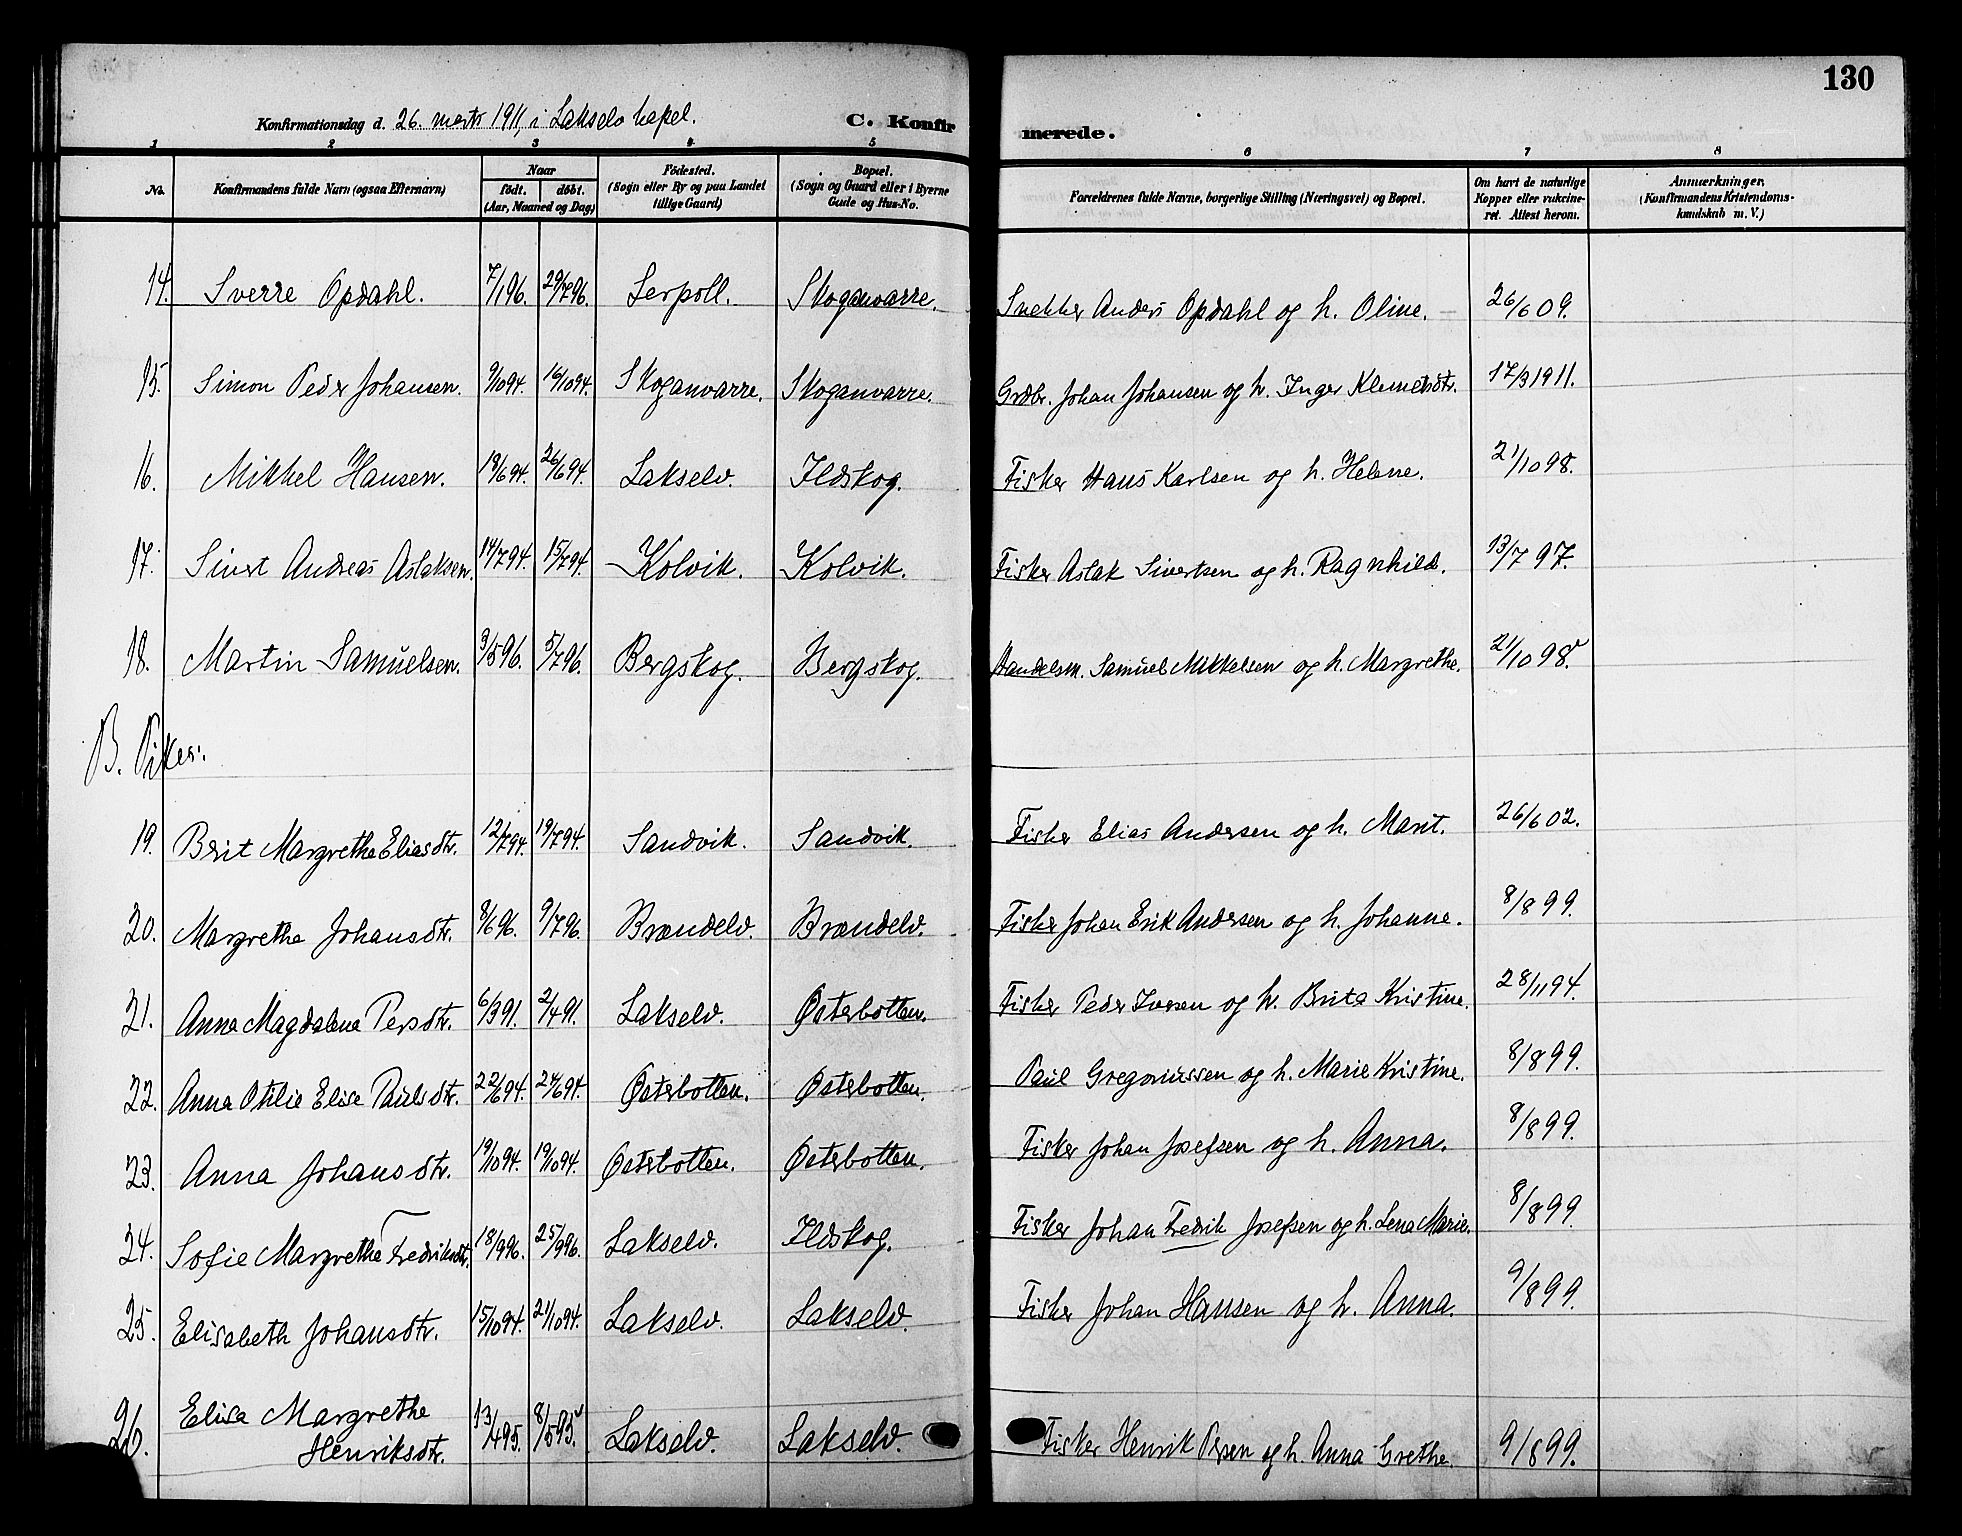 130
Konfirmationsdag d. 26. marts 1911, i Lakselv kapel. C. Konfirmerede.
1 2 3 4 5 6 7 8
No. Konfirmandens fulde Navn (ogsaa Efternavn) Naar født. døbt. (Aar, Maaned og Dag) Fødested. (Sogn eller By og paa Landet tillige Gaard) Bopæl. (Sogn og Gaard eller i Byerne Gade og Hus-No. Forældrenes fulde Navne, borgerlige Stilling (Næringsvei) og Bopæl. Om havt de naturlige Kopper eller vakcineret. Attest herom. Anmærkninger. (Konfirmandens Kristendomskundskab m. V.)
14. Sverre Opdahl. 7/1 96. 29/7 96. Lerpoll. Skoganvarre. Snekker Anders Opdahl og h. Oline. 26/6 09.
15. Simon Peder Johansen. 9/10 94. 16/10 94. Skoganvarre. Skoganvarre. Grdbr. Johan Johansen og h. Inger Klemetsdtr. 17/3 1911.
16. Mikkel Hansen. 19/6 94. 26/6 94. Lakselv. Ildskog. Fisker Hans Karlsen og h. Helene. 21/10 98.
17. Sivert Andreas Aslaksen. 14/7 94. 15/7 94. Kolvik. Kolvik. Fisker Aslak Sivertsen og h. Ragnhild. 13/7 97.
18. Martin Samuelsen. 3/5 96. 5/7 96. Bergskog. Bergskog. Handelsm. Samuel Mikkelsen og h. Margrethe. 21/10 98.
B. Piker.
19. Brit Margrethe Eliasdtr. 12/7 94. 19/7 94. Sandvik. Sandvik. Fisker Elias Andersen og h. Marit. 26/6 02.
20. Margrethe Johansdtr. 8/6 96. 9/7 96. Brændelv. Brændelv. Fisker Johan Erik Andersen og h. Johanne. 8/8 99.
21. Anna Magdalena Persdtr. 6/3 91. 2/4 91. Lakselv. Østerbotten. Fisker Peder Iversen og h. Brita Kristine. 28/11 94.
22. Anna Otilie Elise Paulsdtr. 22/6 94. 24/6 94. Østerbotten. Østerbotten. Paul Gregoriussen og h. Marie Kristine. 8/8 99.
23. Anna Johansdtr. 19/10 94. 19/10 94. Østerbotten. Østerbotten. Fisker Johan Josefsen og h. Anna. 8/8 99.
24. Sofie Margrethe Fredriksdtr. 18/9 96. 25/9 96. Lakselv. Ildskog. Fisker Johan Fredrik Josefsen og h. Lena Marie. 8/8 99.
25. Elisabeth Johansdtr. 15/10 94. 21/10 94. Lakselv. Lakselv. Fisker Johan Hansen og h. Anna. 9/8 99.
26. Elisa Margrethe Henriksdtr. 13/4 95. 8/5 95. Lakselv. Lakselv. Fisker Henrik Persen og h. Anna Grethe. 9/8 99.